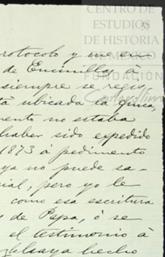 CENTRO DE
ESTUDIOS
DE HISTORIA
FUNDACIÓN
rotocolo y me
de Encinillas
siempre se
ta ubicada la finca
mente no estaba
haber sido expedido
1873 á pedimento
ya no puede sa-
ial, pero yo le
como esa escritura
de Pepa, ó se
el testimonio á
hecho